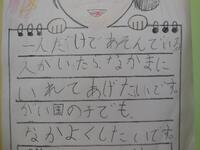 一人だけであそんでいる
人がいたら、なかまに
いれてあげたいです。
がい国の子でも、
なかよくしたいです。